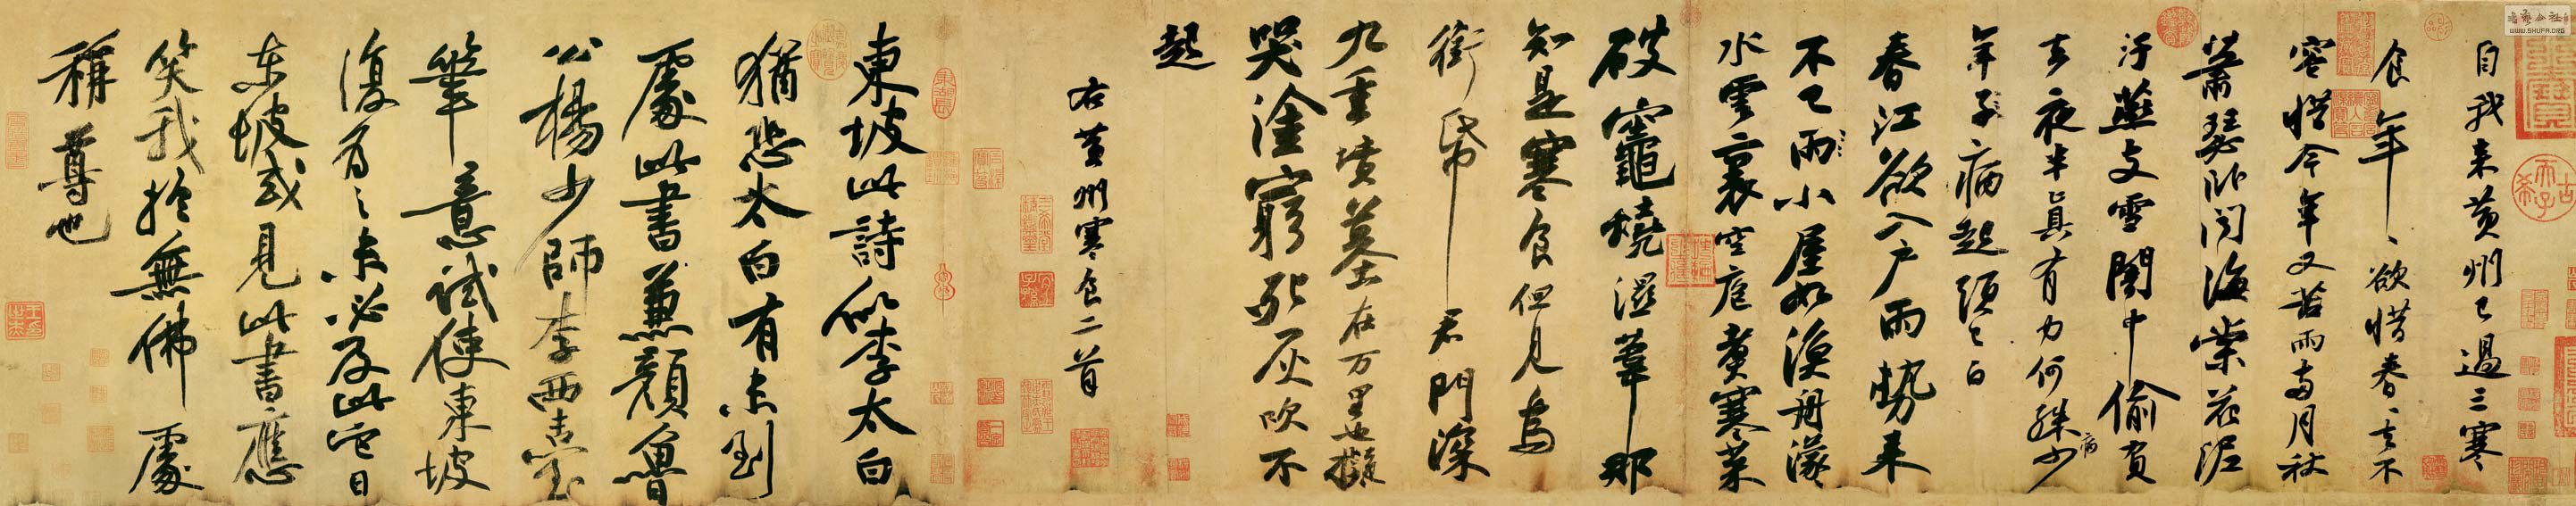 自我来黄州已過三寒
食年、欲惜春、去不
容惜今年又苦雨兩月秋
蕭瑟卧聞海棠花泥
汙燕支雪闇中偷負
去夜半真有力何殊少
病
年子病起頭已白
春江欲入户雨勢来
不已雨小屋如漁舟濛
水雲裏空庖煮寒菜
破竈燒濕葦那
知是寒食但見烏
銜帋君門深
九重墳墓在万里也擬
哭塗窮死灰吹不
起
右黄州寒食二首
東坡此詩似李太白
猶恐太白有未到
處此書兼顔魯
公楊少師李西臺
筆意試使東坡
復為之未必及此它日
東坡或見此書應
笑我於無佛處
稱尊也
古希天子
WWW.SHUFA.ORG